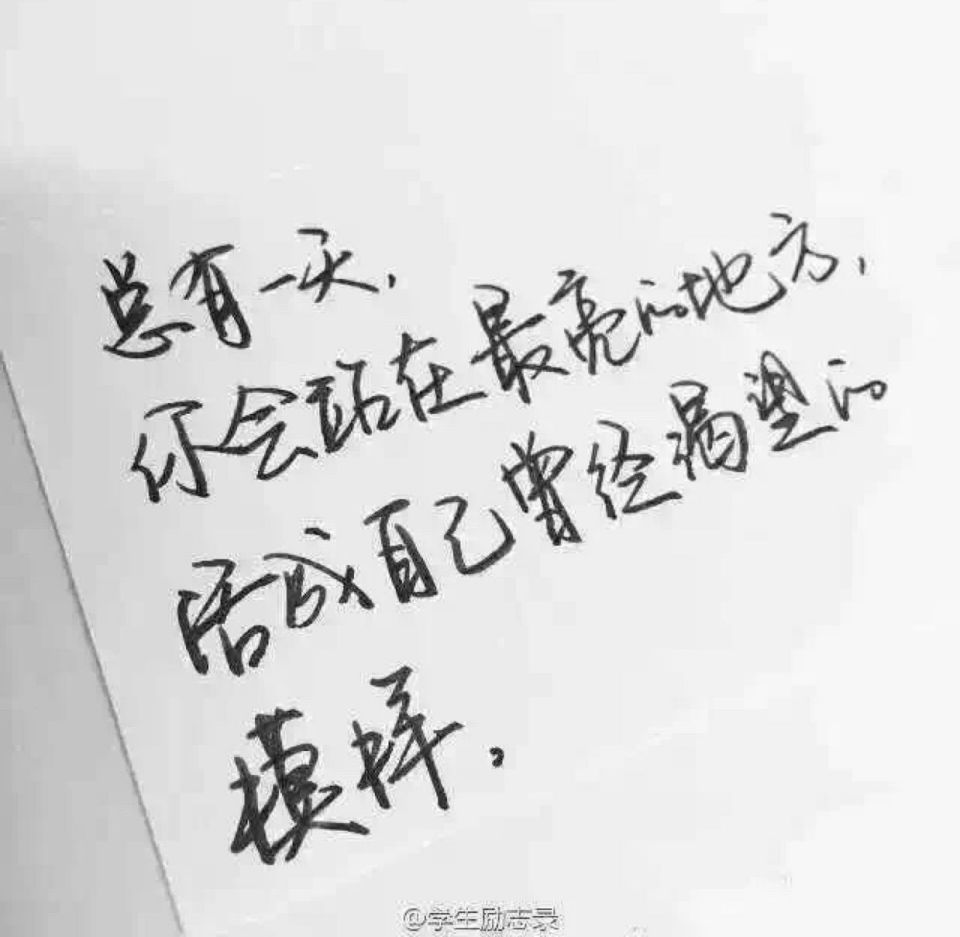 总有一天,
你会站在最亮的地方,
活成自己曾经渴望的
模样。
@学生励志录